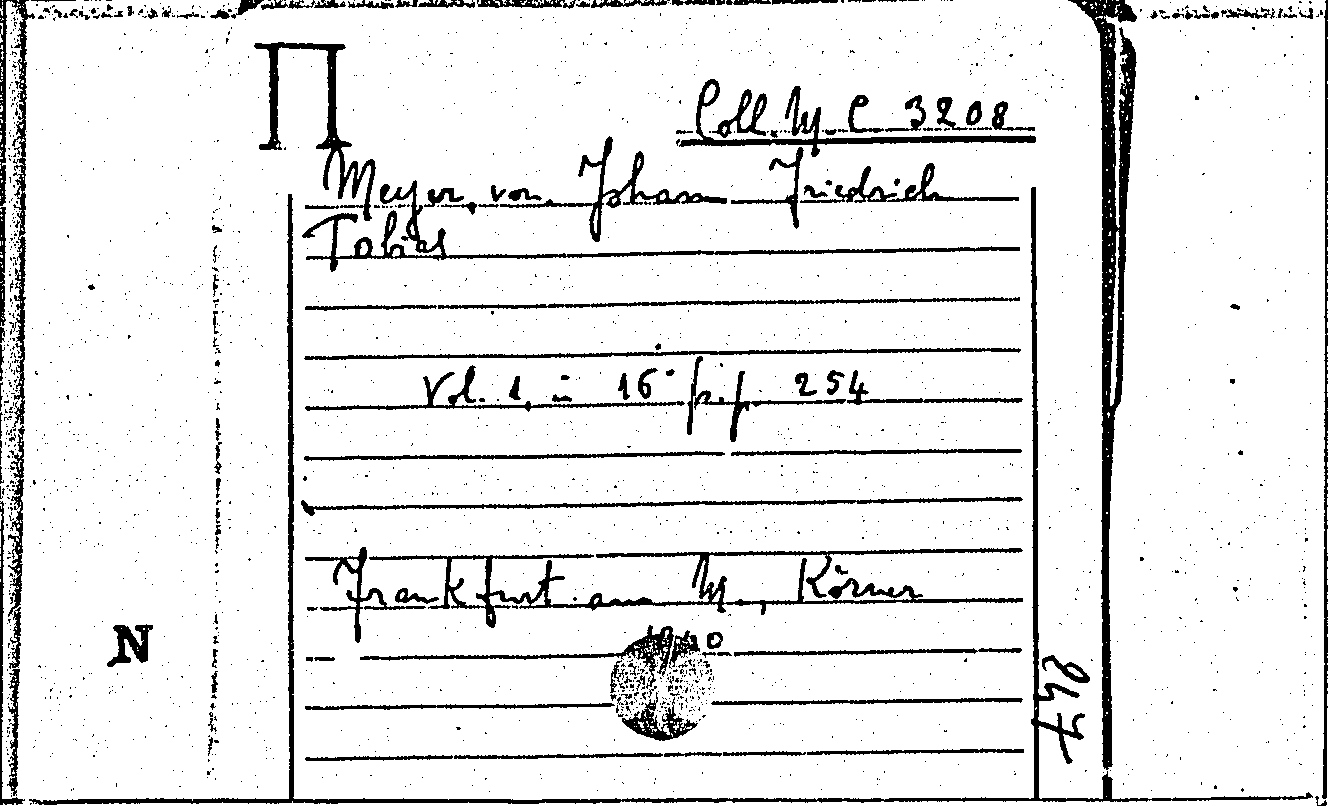 П
Coll. M. C 3208
Meyer, von. Johann Friedrich
Tobias
Vol. 1, in 16° p.p. 254
Frankfurt am M., Körner
N